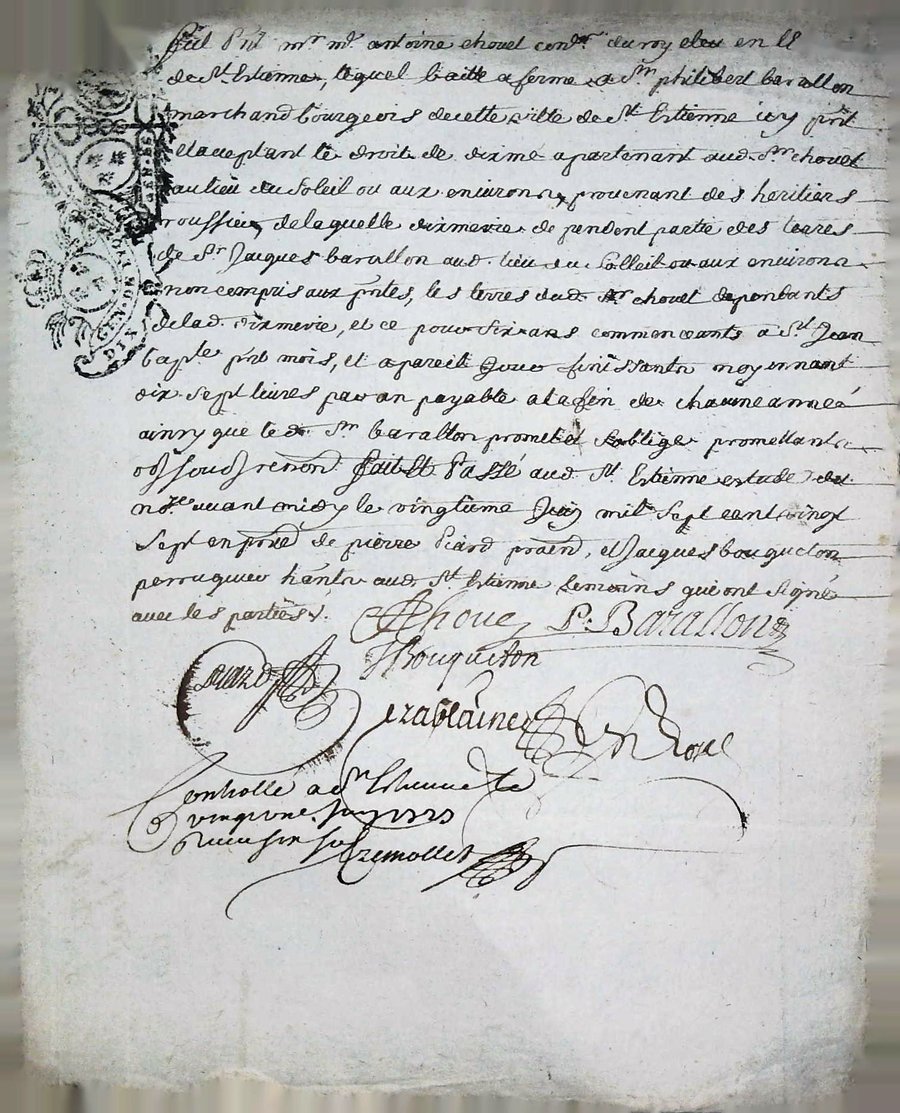 fut pnt mr me antoine chovet conser du roy eleu en l'el
de St Estienne, lequel baille a ferme a Sr philibert barallon
marchand bourgeois de cette ville de St Estienne icy pnt
et aceptant le droit de dixme apartenant aud. Sr chovet
au lieu du Soleil ou aux environs, provenant des heritiers
roussier, de laquelle dixmerie depandent partie des terres
de Sr Jacques barallon aud. lieu du Solleil ou aux environs
non compris aux pntes, les terres dud. Sr chovet dependants
de lad. dixmerie, et ce pour six ans commencants a St Jean
bapte pnt mois, et a pareil Jour finissants moyennant
dix sept livres par an payable a la fin de chacune année
ainsy que led. Sr barallon promet et s'oblige promettants
obl soud renond fait et Passé aud. St Estienne estude des
nres avant midy le vingtieme Juin mil sept cent vingt
sept en pnce de pierre Picard praticn, et Jacques bouqueton
perruquier habts aud. St Estienne temoins qui ont signé
avec les parties.
AChovet P. Barallon
Picard JBouqueton
crablaine
Controllé a St Estienne le
vingt Juin 1727
Recu